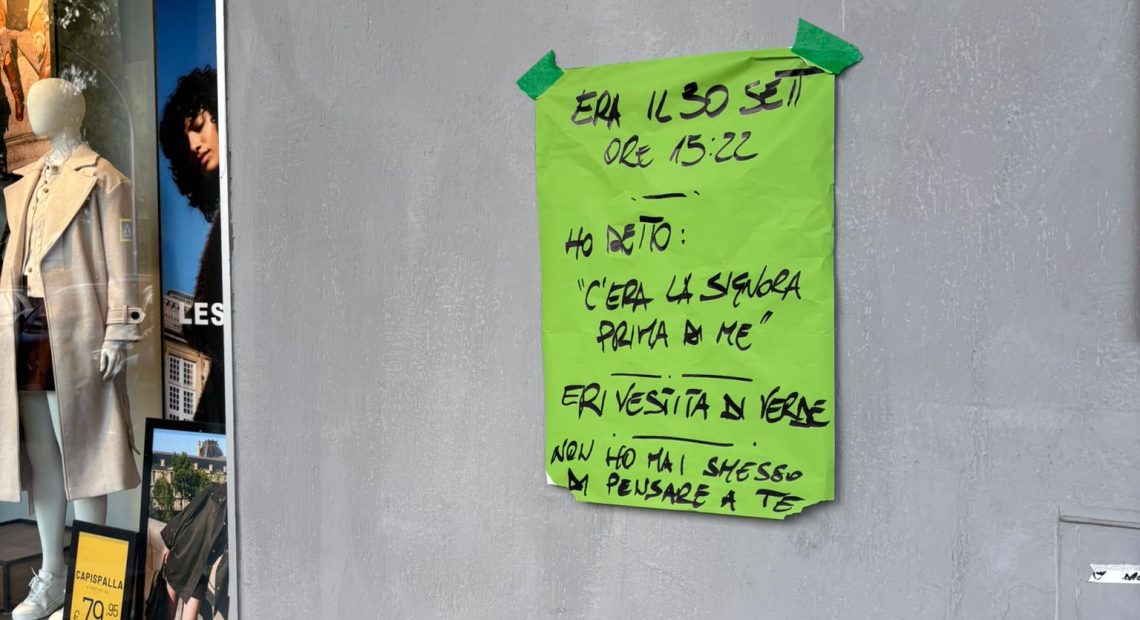 ERA IL 30 SETT
ORE 15:22
HO DETTO:
"C'ERA LA SIGNORA
PRIMA DI ME"
ERI VESTITA DI VERDE
NON HO MAI SMESSO
DI PENSARE A TE
LES
CAPISPALLA
€ 79,95